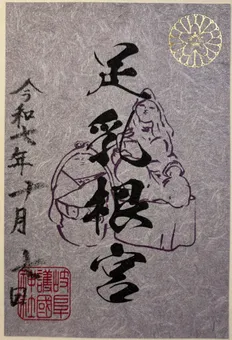 足乳根宮
令和七年十月七日
岐阜
護國
神社